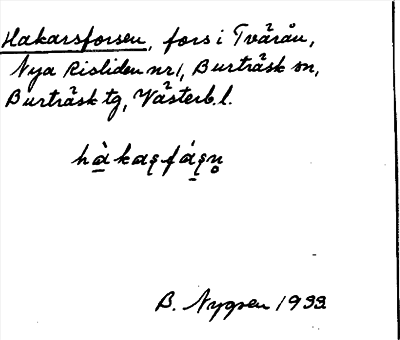 Hakarsforsen, fors i Tvärån,
Nya Risliden nr 1, Burträsk sn,
Burträsk tg, Västerb. l.
hà̱kaꞩfá̱ꞩn̥
B. Nygren 1933.